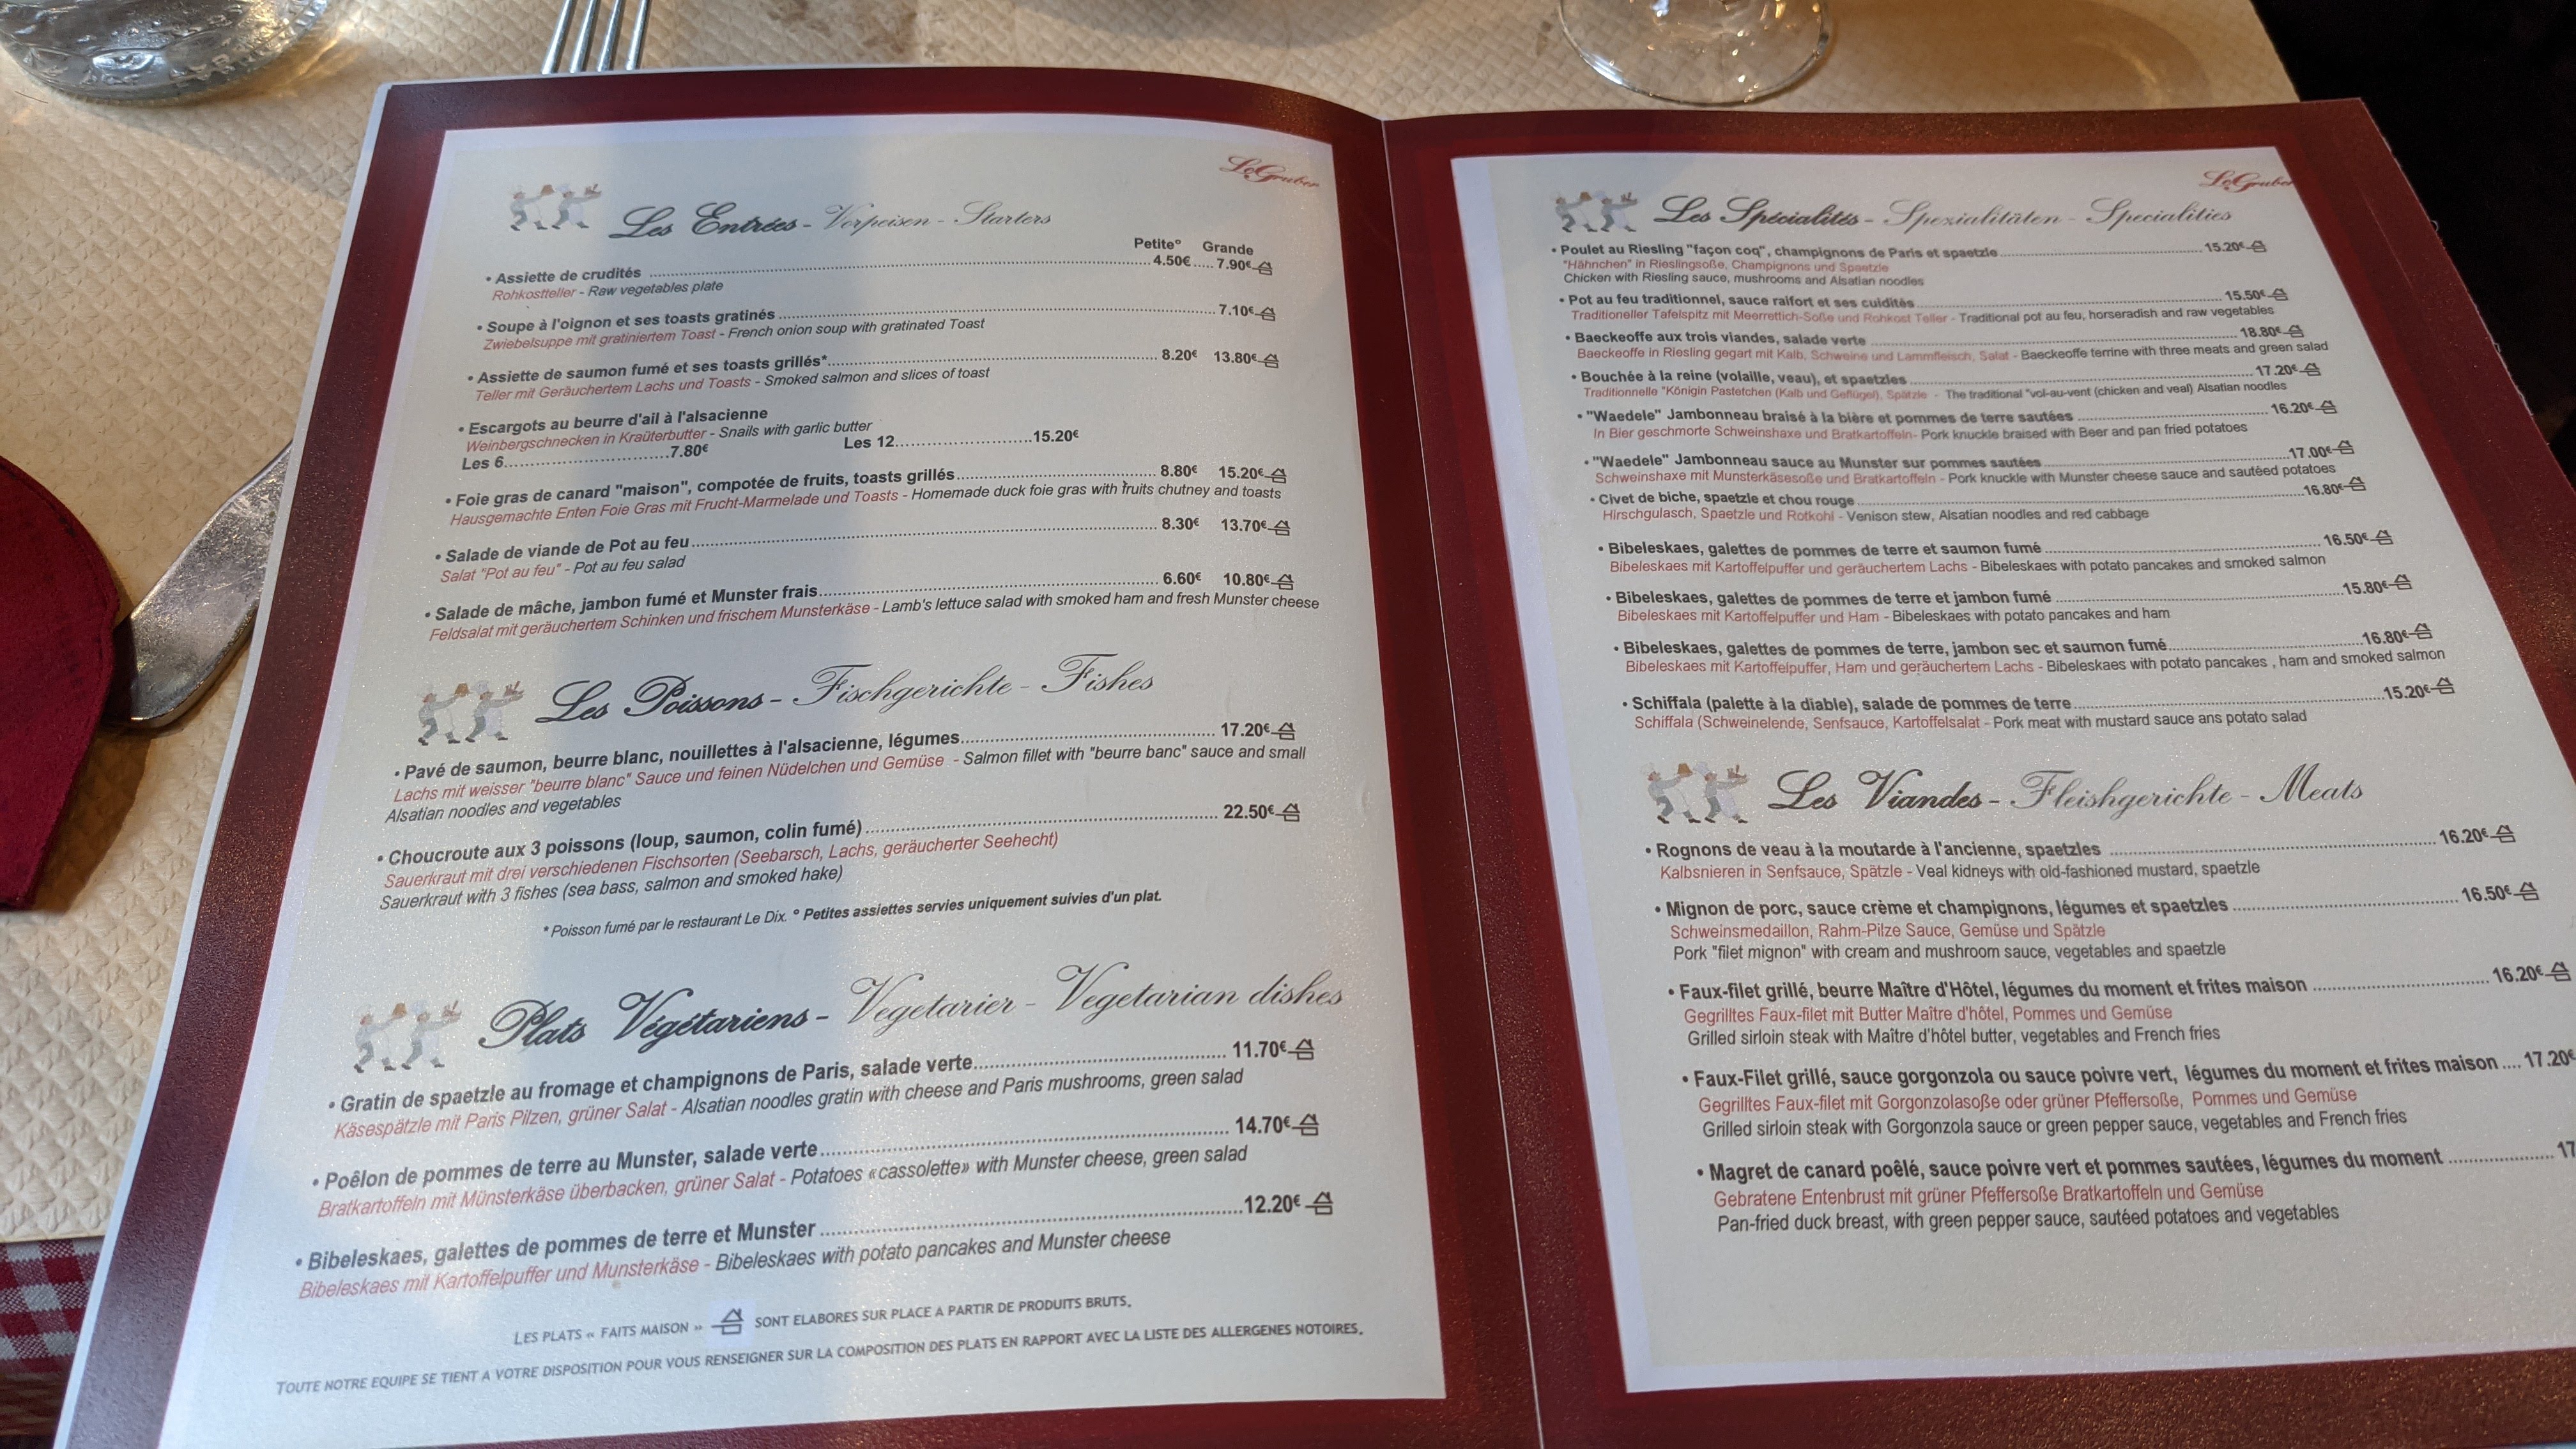 LeGruber
Les Entrées - Vorpeisen - Starters
Petite° Grande
• Assiette de crudités ........ 4.50€ ..... 7.90€
Rohkostteller - Raw vegetables plate
• Soupe à l'oignon et ses toasts gratinés ........ 7.10€
Zwiebelsuppe mit gratiniertem Toast - French onion soup with gratinated Toast
• Assiette de saumon fumé et ses toasts grillés* ........ 8.20€ 13.80€
Teller mit Geräuchertem Lachs und Toasts - Smoked salmon and slices of toast
• Escargots au beurre d'ail à l'alsacienne
Weinbergschnecken in Kraüterbutter - Snails with garlic butter
Les 6 ........ 7.80€ Les 12 ........ 15.20€
• Foie gras de canard "maison", compotée de fruits, toasts grillés ........ 8.80€ 15.20€
Hausgemachte Enten Foie Gras mit Frucht-Marmelade und Toasts - Homemade duck foie gras with fruits chutney and toasts
• Salade de viande de Pot au feu ........ 8.30€ 13.70€
Salat "Pot au feu" - Pot au feu salad
• Salade de mâche, jambon fumé et Munster frais ........ 6.60€ 10.80€
Feldsalat mit geräuchertem Schinken und frischem Munsterkäse - Lamb's lettuce salad with smoked ham and fresh Munster cheese
Les Poissons - Fischgerichte - Fishes
• Pavé de saumon, beurre blanc, nouillettes à l'alsacienne, légumes ........ 17.20€
Lachs mit weisser "beurre blanc" Sauce und feinen Nüdelchen und Gemüse - Salmon fillet with "beurre banc" sauce and small
Alsatian noodles and vegetables
• Choucroute aux 3 poissons (loup, saumon, colin fumé) ........ 22.50€
Sauerkraut mit drei verschiedenen Fischsorten (Seebarsch, Lachs, geräucherter Seehecht)
Sauerkraut with 3 fishes (sea bass, salmon and smoked hake)
* Poisson fumé par le restaurant Le Dix. ° Petites assiettes servies uniquement suivies d'un plat.
Plats Végétariens - Vegetarier - Vegetarian dishes
• Gratin de spaetzle au fromage et champignons de Paris, salade verte ........ 11.70€
Käsespätzle mit Paris Pilzen, grüner Salat - Alsatian noodles gratin with cheese and Paris mushrooms, green salad
• Poêlon de pommes de terre au Munster, salade verte ........ 14.70€
Bratkartoffeln mit Münsterkäse überbacken, grüner Salat - Potatoes «cassolette» with Munster cheese, green salad
• Bibeleskaes, galettes de pommes de terre et Munster ........ 12.20€
Bibeleskaes mit Kartoffelpuffer und Munsterkäse - Bibeleskaes with potato pancakes and Munster cheese
LES PLATS « FAITS MAISON » SONT ELABORES SUR PLACE A PARTIR DE PRODUITS BRUTS.
TOUTE NOTRE EQUIPE SE TIENT A VOTRE DISPOSITION POUR VOUS RENSEIGNER SUR LA COMPOSITION DES PLATS EN RAPPORT AVEC LA LISTE DES ALLERGENES NOTOIRES.
LeGruber
Les Spécialités - Spezialitäten - Specialities
• Poulet au Riesling "façon coq", champignons de Paris et spaetzle ........ 15.20€
"Hähnchen" in Rieslingsoße, Champignons und Spaetzle
Chicken with Riesling sauce, mushrooms and Alsatian noodles
• Pot au feu traditionnel, sauce raifort et ses cuidités ........ 15.50€
Traditioneller Tafelspitz mit Meerrettich-Soße und Rohkost Teller - Traditional pot au feu, horseradish and raw vegetables
• Baeckeoffe aux trois viandes, salade verte ........ 18.80€
Baeckeoffe in Riesling gegart mit Kalb, Schweine und Lammfleisch, Salat - Baeckeoffe terrine with three meats and green salad
• Bouchée à la reine (volaille, veau), et spaetzles ........ 17.20€
Traditionnelle "Königin Pastetchen (Kalb und Geflügel), Spätzle - The traditional "vol-au-vent (chicken and veal) Alsatian noodles
• "Waedele" Jambonneau braisé à la bière et pommes de terre sautées ........ 16.20€
In Bier geschmorte Schweinshaxe und Bratkartoffeln- Pork knuckle braised with Beer and pan fried potatoes
• "Waedele" Jambonneau sauce au Munster sur pommes sautées ........ 17.00€
Schweinshaxe mit Munsterkäsesoße und Bratkartoffeln - Pork knuckle with Munster cheese sauce and sautéed potatoes
• Civet de biche, spaetzle et chou rouge ........ 16.80€
Hirschgulasch, Spaetzle und Rotkohl - Venison stew, Alsatian noodles and red cabbage
• Bibeleskaes, galettes de pommes de terre et saumon fumé ........ 16.50€
Bibeleskaes mit Kartoffelpuffer und geräuchertem Lachs - Bibeleskaes with potato pancakes and smoked salmon
• Bibeleskaes, galettes de pommes de terre et jambon fumé ........ 15.80€
Bibeleskaes mit Kartoffelpuffer und Ham - Bibeleskaes with potato pancakes and ham
• Bibeleskaes, galettes de pommes de terre, jambon sec et saumon fumé ........ 16.80€
Bibeleskaes mit Kartoffelpuffer, Ham und geräuchertem Lachs - Bibeleskaes with potato pancakes , ham and smoked salmon
• Schiffala (palette à la diable), salade de pommes de terre ........ 15.20€
Schiffala (Schweinelende, Senfsauce, Kartoffelsalat - Pork meat with mustard sauce ans potato salad
Les Viandes - Fleishgerichte - Meats
• Rognons de veau à la moutarde à l'ancienne, spaetzles ........ 16.20€
Kalbsnieren in Senfsauce, Spätzle - Veal kidneys with old-fashioned mustard, spaetzle
• Mignon de porc, sauce crème et champignons, légumes et spaetzles ........ 16.50€
Schweinsmedaillon, Rahm-Pilze Sauce, Gemüse und Spätzle
Pork "filet mignon" with cream and mushroom sauce, vegetables and spaetzle
• Faux-filet grillé, beurre Maître d'Hôtel, légumes du moment et frites maison ........ 16.20€
Gegrilltes Faux-filet mit Butter Maître d'hôtel, Pommes und Gemüse
Grilled sirloin steak with Maître d'hôtel butter, vegetables and French fries
• Faux-Filet grillé, sauce gorgonzola ou sauce poivre vert, légumes du moment et frites maison .... 17.20€
Gegrilltes Faux-filet mit Gorgonzolasoße oder grüner Pfeffersoße, Pommes und Gemüse
Grilled sirloin steak with Gorgonzola sauce or green pepper sauce, vegetables and French fries
• Magret de canard poêlé, sauce poivre vert et pommes sautées, légumes du moment ........ 17
Gebratene Entenbrust mit grüner Pfeffersoße Bratkartoffeln und Gemüse
Pan-fried duck breast, with green pepper sauce, sautéed potatoes and vegetables